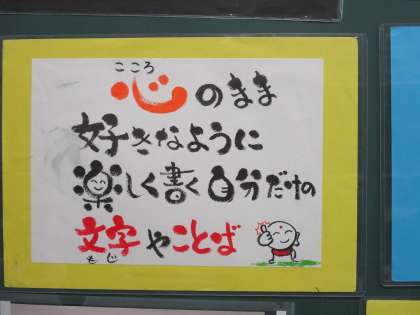 こころ
心のまま
好きなように
楽しく書く自分だけの
文字やことば
もじ